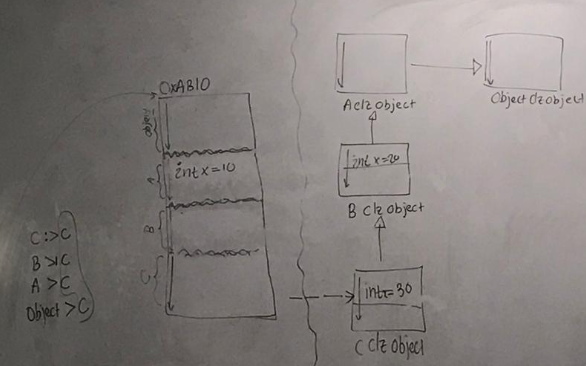 0xAB10
Object
int x=10
A
B
C
C:>C
B>C
A>C
Object>C
A clz object
Object clz object
int x=20
B clz object
int x=30
C clz object